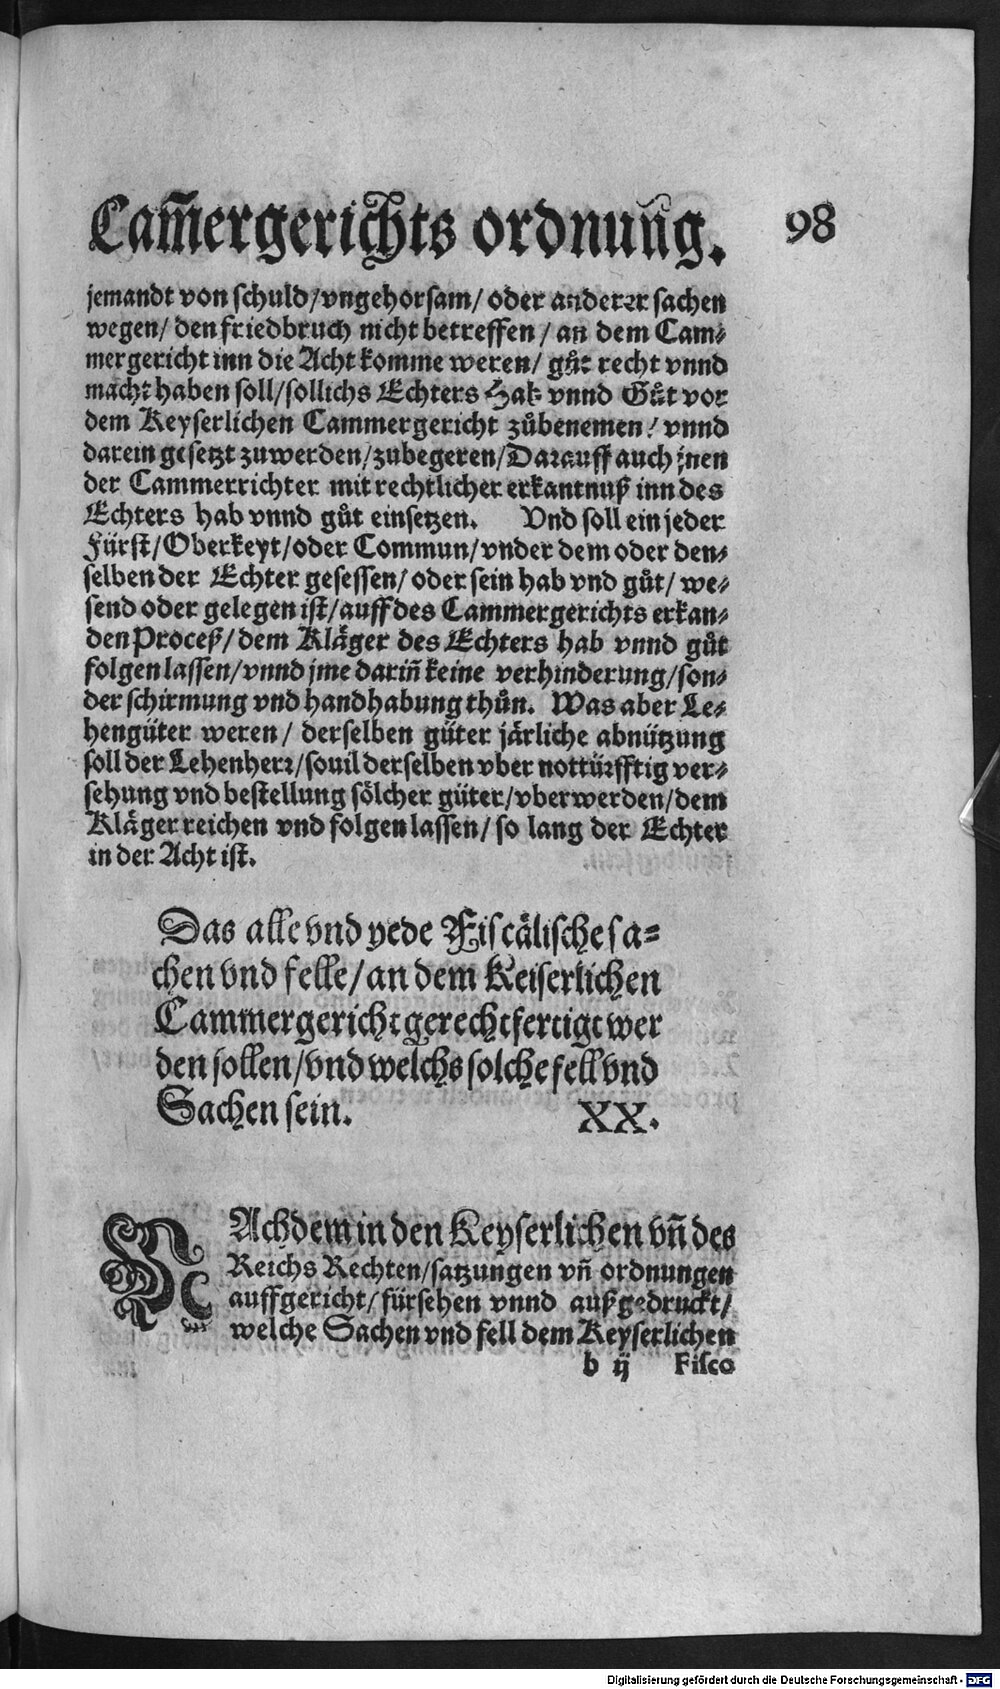 Cam̃ergerichts ordnung.
98
jemandt von schuld/vngehorsam/ oder anderer sachen
wegen/ den friedbruch nicht betreffen/ an dem Cam⸗
mergericht inn die Acht komme weren/ gůt recht vnnd
macht haben soll/sollichs Echters Hab vnnd Gůt vor
dem Keyserlichen Cammergericht zůbenemen/ vnnd
darein gesetzt zuwerden/zubegeren/Darauff auch jnen
der Cammerrichter mit rechtlicher erkantnuß inn des
Echters hab vnnd gůt einsetzen. Vnd soll ein jeder
Fürst/Oberkeyt/oder Commun/vnder dem oder den⸗
selben der Echter gesessen/ oder sein hab vnd gůt/ we⸗
send oder gelegen ist/auff des Cammergerichts erkan⸗
den Proceß/ dem Kläger des Echters hab vnnd gůt
folgen lassen/vnnd jme dariñ keine verhinderung/son⸗
der schirmung vnd handhabung thůn. Was aber Le⸗
hengüter weren/ derselben güter järliche abnützung
soll der Lehenherr/souil derselben vber nottürfftig ver⸗
sehung vnd bestellung sölcher güter/vberwerden/dem
Kläger reichen vnd folgen lassen/ so lang der Echter
in der Acht ist.
Das alle vnd yede Fiscälische sa⸗
chen vnd felle/an dem Keiserlichen
Cammergericht gerechtfertigt wer
den sollen/vnd welchs solche fell vnd
Sachen sein. XX.
NAchdem in den Keyserlichen vñ des
Reichs Rechten/satzungen vñ ordnungen
auffgericht/fürsehen vnnd außgedruckt/
welche Sachen vnd fell dem Keyserlichen
b ij Fisco
Digitalisierung gefördert durch die Deutsche Forschungsgemeinschaft - DFG